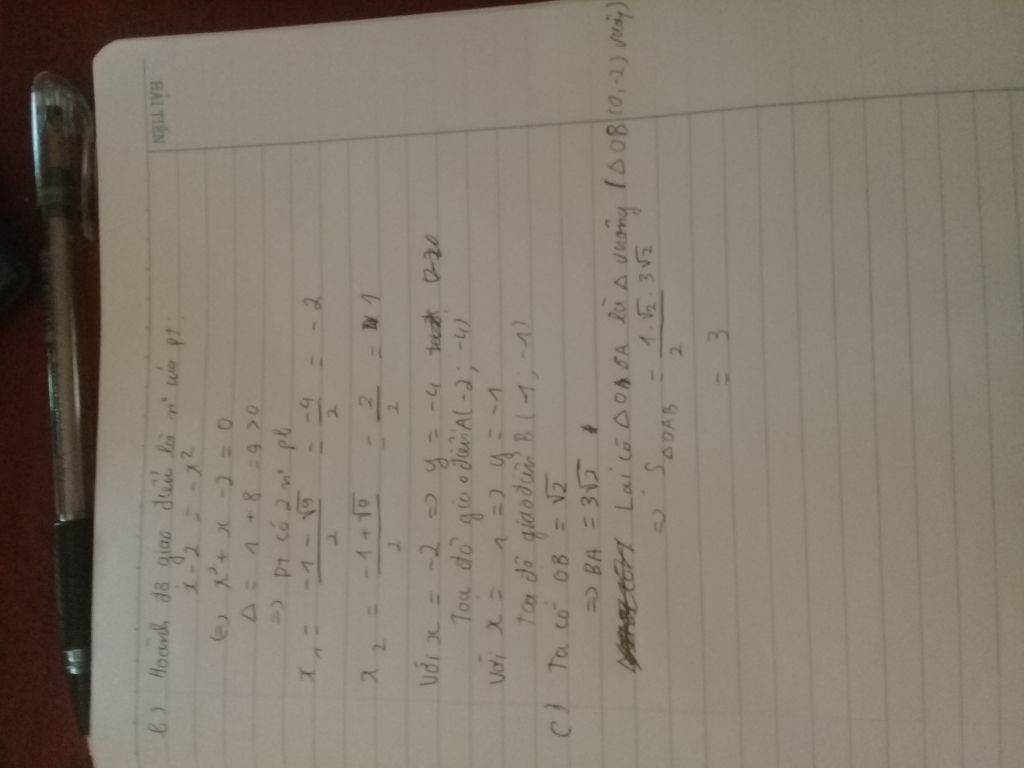 HẢI TIẾN
b) Hoành độ giao điểm là n° của pt:
x - 2 = -x²
(=) x² + x - 2 = 0
Δ = 1 + 8 = 9 > 0
=> Pt có 2 n° pb
x₁ = -1 - √9 / 2 = -4 / 2 = -2
x₂ = -1 + √9 / 2 = 2 / 2 = 1
Với x = -2 => y = -4
Toạ độ giao điểm A(-2; -4)
Với x = 1 => y = -1
Toạ độ giao điểm B(-1; -1)
c) Ta có OB = √2
=> BA = 3√2
Lại có Δ OBA là Δ vuông (Δ OB(0,-2)
=> S ΔOAB = 1.√2.3√2 / 2
= 3